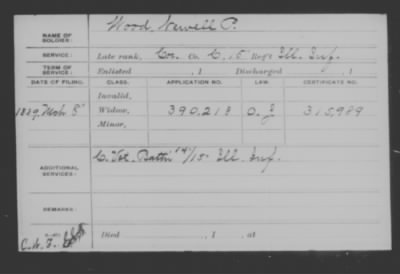 NAME OF SOLDIER: Wood, Newell C.
SERVICE: Late rank, Cor. Co. C, 15 Reg't Ill. Inf.
TERM OF SERVICE: Enlisted , 1 Discharged , 1
DATE OF FILING. CLASS. APPLICATION NO. LAW. CERTIFICATE NO.
Invalid,
1889 Mch 8 Widow, 390,218 O. L 315,989
Minor,
ADDITIONAL SERVICES: C. Vet. Batt'n 14/15 Ill. Inf.
REMARKS:
Died , 1 , at